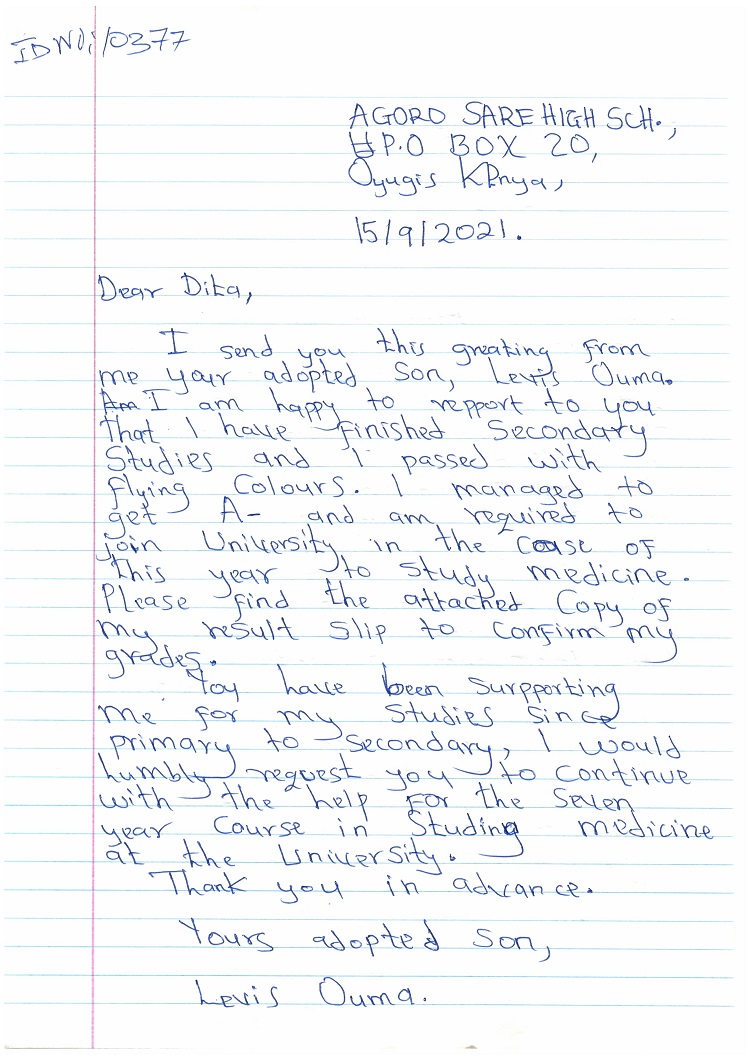 ID NO:/0377
AGORO SARE HIGH SCH.,
P.O BOX 20,
Oyugis Kenya,
15/9/2021.
Dear Dita,
I send you this greating from
me your adopted Son, Levis Ouma.
I am happy to repport to you
that I have finished Secondary
Studies and I passed with
flying Colours. I managed to
get A- and am required to
join University in the Couse of
this year to study medicine.
Please find the attached Copy of
my result slip to confirm my
grades.
You have been surpporting
me for my studies since
primary to secondary, I would
humbly request you to continue
with the help for the seven
year Course in Studing medicine
at the University.
Thank you in advance.
Yours adopted Son,
Levis Ouma.